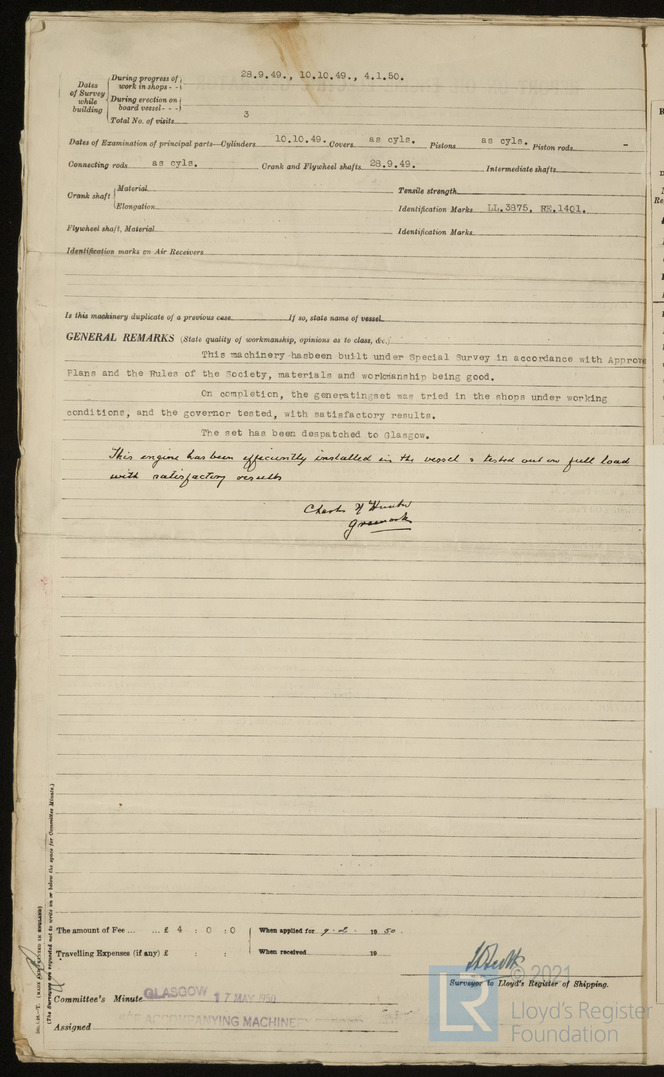 Dates of Survey while building
During progress of work in shops - - 28.9.49., 10.10.49., 4.1.50.
During erection on board vessel - - -
Total No. of visits 3
Dates of Examination of principal parts—Cylinders 10.10.49. Covers as cyls. Pistons as cyls. Piston rods -
Connecting rods as cyls. Crank and Flywheel shafts 28.9.49. Intermediate shafts
Crank shaft Material Tensile strength
Elongation Identification Marks LL.3875. RE.1401.
Flywheel shaft, Material Identification Marks
Identification marks on Air Receivers
Is this machinery duplicate of a previous case If so, state name of vessel
GENERAL REMARKS (State quality of workmanship, opinions as to class, &c.)
This machinery hasbeen built under Special Survey in accordance with Approve
Plans and the Rules of the Society, materials and workmanship being good.
On completion, the generatingset was tried in the shops under working
conditions, and the governor tested, with satisfactory results.
The set has been despatched to Glasgow.
This engine has been efficiently installed in the vessel & tested out on full load
with satisfactory results
Greenock
The amount of Fee ... ... £ 4 : 0 : 0 When applied for 9-2- 1950.
Travelling Expenses (if any) £ : : When received 19
© 2021
Surveyor to Lloyd's Register of Shipping.
Committee's Minute GLASGOW 17 MAY 1950
SEE ACCOMPANYING MACHINERY
Assigned
(MADE AND PRINTED IN ENGLAND)
(The Surveyors are requested not to write on or below the space for Committee Minute.)
LR
Lloyd's Register
Foundation